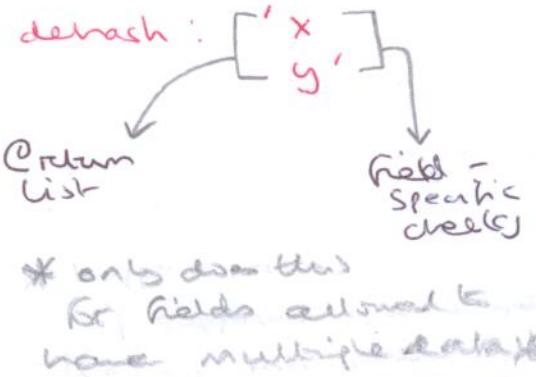 dehash : [ ' x
y ' ]
@return
list
field -
specific
checks
* only does this
for fields allowed to
have multiple